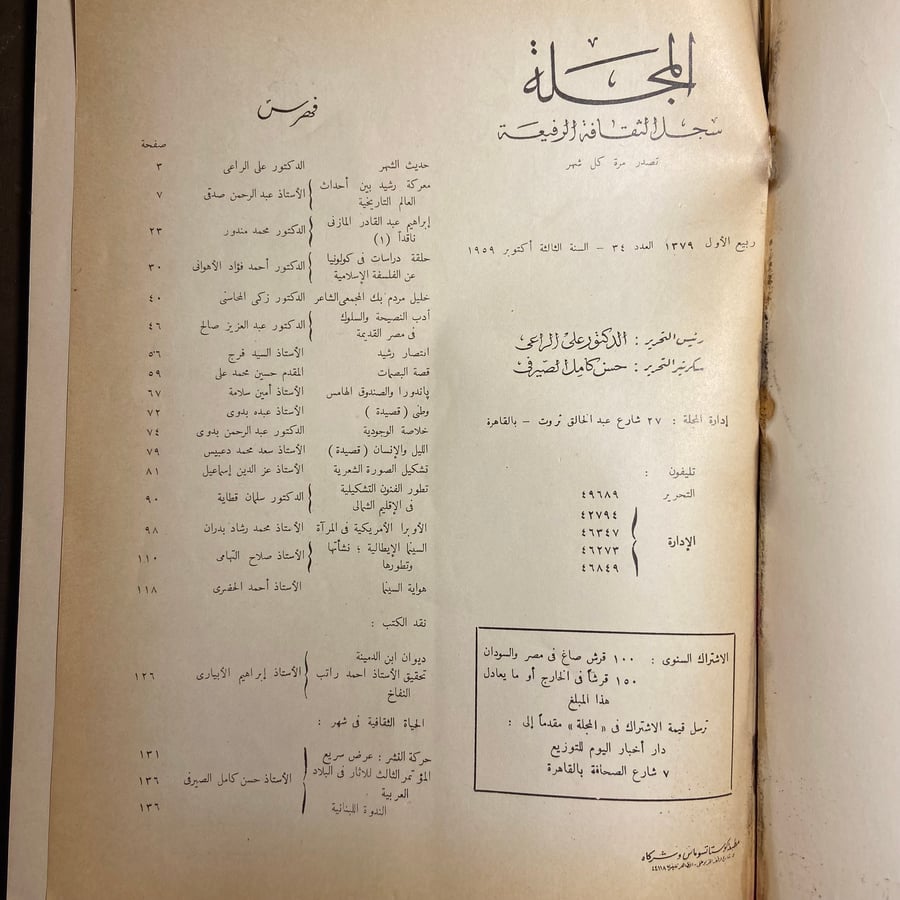 المجلة
سجل الثقافة الرفيعة
تصدر مرة كل شهر
ربيع الأول ١٣٧٩ العدد ٣٤ – السنة الثالثة أكتوبر ١٩٥٩
رئيس التحرير : الدكتور على الراعى
سكرتير التحرير : حسن كامل الصيرفى
إدارة المجلة : ٢٧ شارع عبد الخالق ثروت – بالقاهرة
تليفون :
التحرير ٤٩٦٨٩
الإدارة
٤٢٧٩٤
٤٦٣٤٧
٤٦٢٧٣
٤٦٨٤٩
الاشتراك السنوى : ١٠٠ قرش صاغ فى مصر والسودان
١٥٠ قرشاً فى الخارج أو ما يعادل
هذا المبلغ
ترسل قيمة الاشتراك فى « المجلة » مقدماً إلى :
دار أخبار اليوم للتوزيع
٧ شارع الصحافة بالقاهرة
مطبعة كوستاتسوماس وشركاه
فهرس
صفحة
حديث الشهر الدكتور على الراعى ٣
معركة رشيد بين أحداث
العالم التاريخية الأستاذ عبد الرحمن صدقى ٧
إبراهيم عبد القادر المازنى
ناقداً (١) الدكتور محمد مندور ٢٣
حلقة دراسات فى كولونيا
عن الفلسفة الإسلامية الدكتور أحمد فؤاد الأهوانى ٣٠
خليل مردم بك المجمعى الشاعر الدكتور زكى المحاسنى ٤٠
أدب النصيحة والسلوك
فى مصر القديمة الدكتور عبد العزيز صالح ٤٦
انتصار رشيد الأستاذ السيد فرج ٥٦
قصة البصمات المقدم حسين محمد على ٥٩
پاندورا والصندوق الهامس الأستاذ أمين سلامة ٦٧
وطنى ( قصيدة ) الأستاذ عبده بدوى ٧٢
خلاصة الوجودية الدكتور عبد الرحمن بدوى ٧٤
الليل والإنسان ( قصيدة ) الأستاذ سعد محمد دعبيس ٧٩
تشكيل الصورة الشعرية الأستاذ عز الدين إسماعيل ٨١
تطور الفنون التشكيلية
فى الإقليم الشمالى الدكتور سلمان قطاية ٩٠
الأوبرا الأمريكية فى المرآة الأستاذ محمد رشاد بدران ٩٨
السينما الإيطالية ؛ نشأتها
وتطورها الأستاذ صلاح التهامى ١١٠
هواية السينما الأستاذ أحمد الحضرى ١١٨
نقد الكتب :
ديوان ابن الدمينة
تحقيق الأستاذ احمد راتب
النفاخ الأستاذ إبراهيم الأبيارى ١٢٦
الحياة الثقافية فى شهر :
حركة النشر : عرض سريع ١٣١
المؤتمر الثالث للآثار فى البلاد
العربية الأستاذ حسن كامل الصيرفى ١٣٦
الندوة اللبنانية ١٣٦